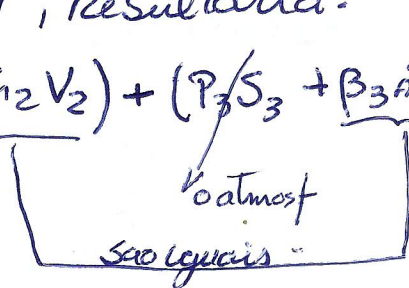 , Resultaria:
ṁ₂V₂) + (P₃S₃ + β₃ṁ
0 atmosf
são iguais